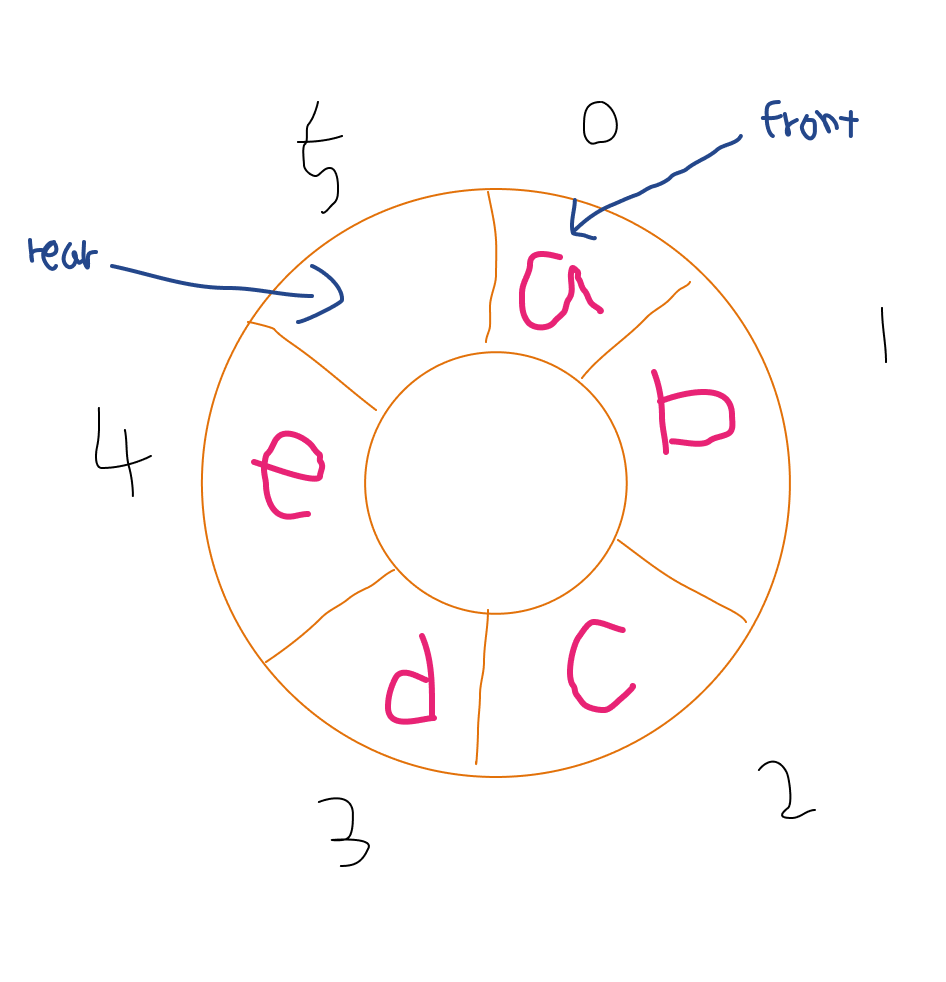 5
0
front
rear
a
1
b
4
e
c
d
2
3